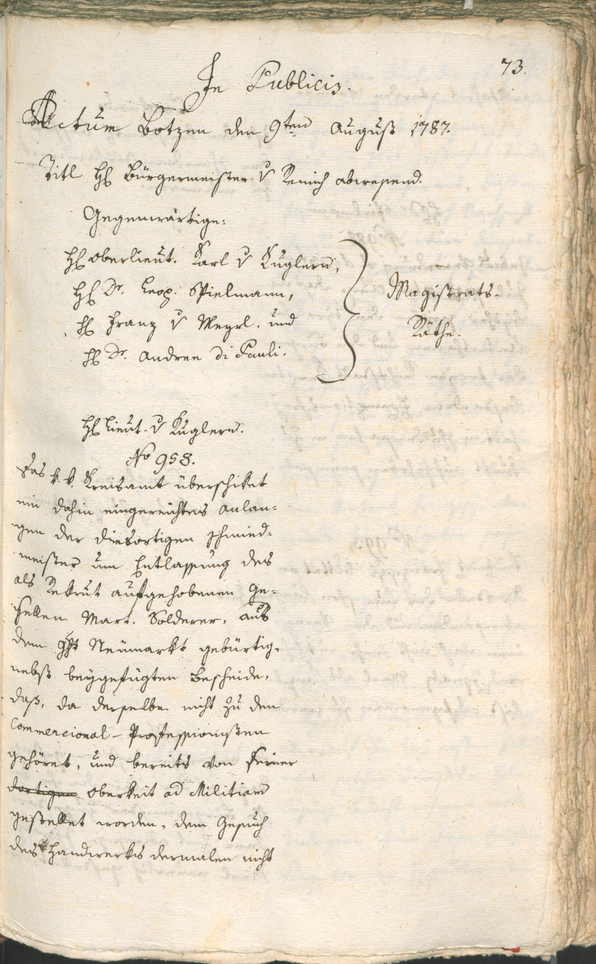 73.
In Publicis.
Actum Botzen den 9ten August 1787.
Titl H: Bürgermeister v Remich abwesend.
Gegenwärtige:
H: Oberlieut. Karl v Kuglern,
H: Dr. Leop: Spielmann,
H: Franz v Mezel. und
H: Dr. Andree di Pauli.
Magistrats-
Räthe.
H: Lieut. v Kuglern.
No 958.
Das k. k. Kreisamt überschiket
ein dahin eingereichtes Anlan-
gen der diesortigen Schmied-
meister um Entlassung des
als Rekrut aufgehobenen Ge-
sellen Mart. Solderer, aus
dem Ght Neumarkt gebürtig,
nebst beygefügten Bescheide,
daß, da derselbe nicht zu den
Commercional-Professionisten
gehöret, und bereits von seiner
dortigen Oberkeit ad Militiam
gestellet worden, dem Gesuch
des Handwerks dermalen nicht